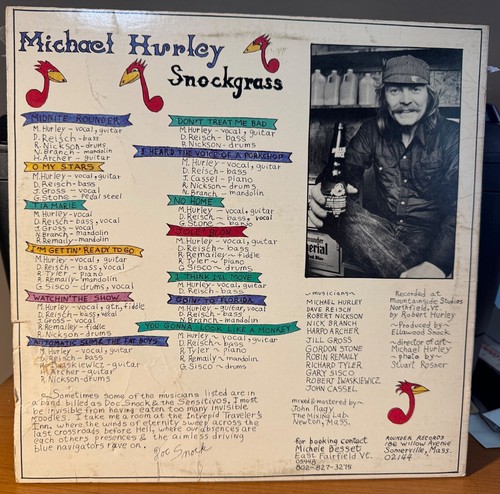 Michael Hurley
Snockgrass
MIDNITE ROUNDER
M. Hurley - vocal, guitar
J. Reisch - bass
R. Nickson - drums
N. Branch - mandolin
H. Archer - guitar
O MY STARS
M. Hurley - vocal, guitar
D. Reisch - bass
J. Gross - vocal
G. Stone - pedal steel
TIA MARIE
M. Hurley - vocal
D. Reisch - bass, vocal
J. Gross - vocal
N. Branch - mandolin
R. Remaily - mandolin
I'M GETTIN' READY TO GO
M. Hurley - vocal, guitar
D. Reisch - bass, vocal
R. Tyler - piano
R. Remaily - mandolin
G. Sisco - drums, vocal
WATCHIN' THE SHOW
M. Hurley - vocal, gtr, fiddle
D. Reisch - bass, vocal
J. Gross - vocal
R. Remailey - fiddle
R. Nickson - drums
AUTOMATIC SLIM & THE FAT BOYS
M. Hurley - vocal, guitar
D. Reisch - bass
R. Iwaskiewicz - guitar
H. Archer - guitar
R. Nickson - drums
DON'T TREAT ME BAD
M. Hurley - vocal, guitar
D. Reisch - bass
R. Nickson - drums
I HEARD THE VOICE OF A PORKCHOP
M. Hurley - vocal, guitar
D. Reisch - bass
J. Cassel - piano
R. Nickson - drums
N. Branch - mandolin
NO HOME
M. Hurley - vocal, guitar
D. Reisch - bass, vocal
G. Stone - banjo
JOLE BLON
M. Hurley - vocal, guitar
D. Reisch - bass
R. Remailey - fiddle
R. Tyler - piano
G. Sisco - drums
I THINK I'LL MOVE
M. Hurley - vocal, guitar
D. Reisch - bass
GOIN' TO FLORIDA
M. Hurley - guitar, vocal
D. Reisch - bass
N. Branch - mandolin
YOU GONNA LOOK LIKE A MONKEY
M. Hurley - vocal, guitar
D. Reisch - bass
R. Tyler - piano
R. Remaily - mandolin
G. Sisco - drums
Sometimes some of the musicians listed are in
a band billed as Doc Snock & the Sensitivos, I must
be invisible from having eaten too many invisible
noodles. I take me a room at the Intrepid Traveler's
Inn, where the winds of eternity sweep across the
last crossroads before Hell, where ordinances are
each others presences & the aimless driving
blue navigators rave on.
Doc Snock
-musicians-
MICHAEL HURLEY
DAVE REISCH
ROBERT NICKSON
NICK BRANCH
HARPO ARCHER
JILL GROSS
GORDON STONE
ROBIN REMAILY
RICHARD TYLER
GARY SISCO
ROBERT IWASKIEWICZ
JOHN CASSEL
mixed & mastered by -
John Nagy
The Mixing Lab
Newton, Mass.
for booking contact
Michele Besset
East Fairfield Vt.
05448
802-827-3275
Recorded at
Mountainside Studios
Northfield, Vt.
by Robert Hurley
-Produced by-
Ellawood Snook
-director of art-
Michael Hurley
-photo by-
Stuart Rosner
ROUNDER RECORDS
186 Willow Avenue
Somerville, Mass.
02144